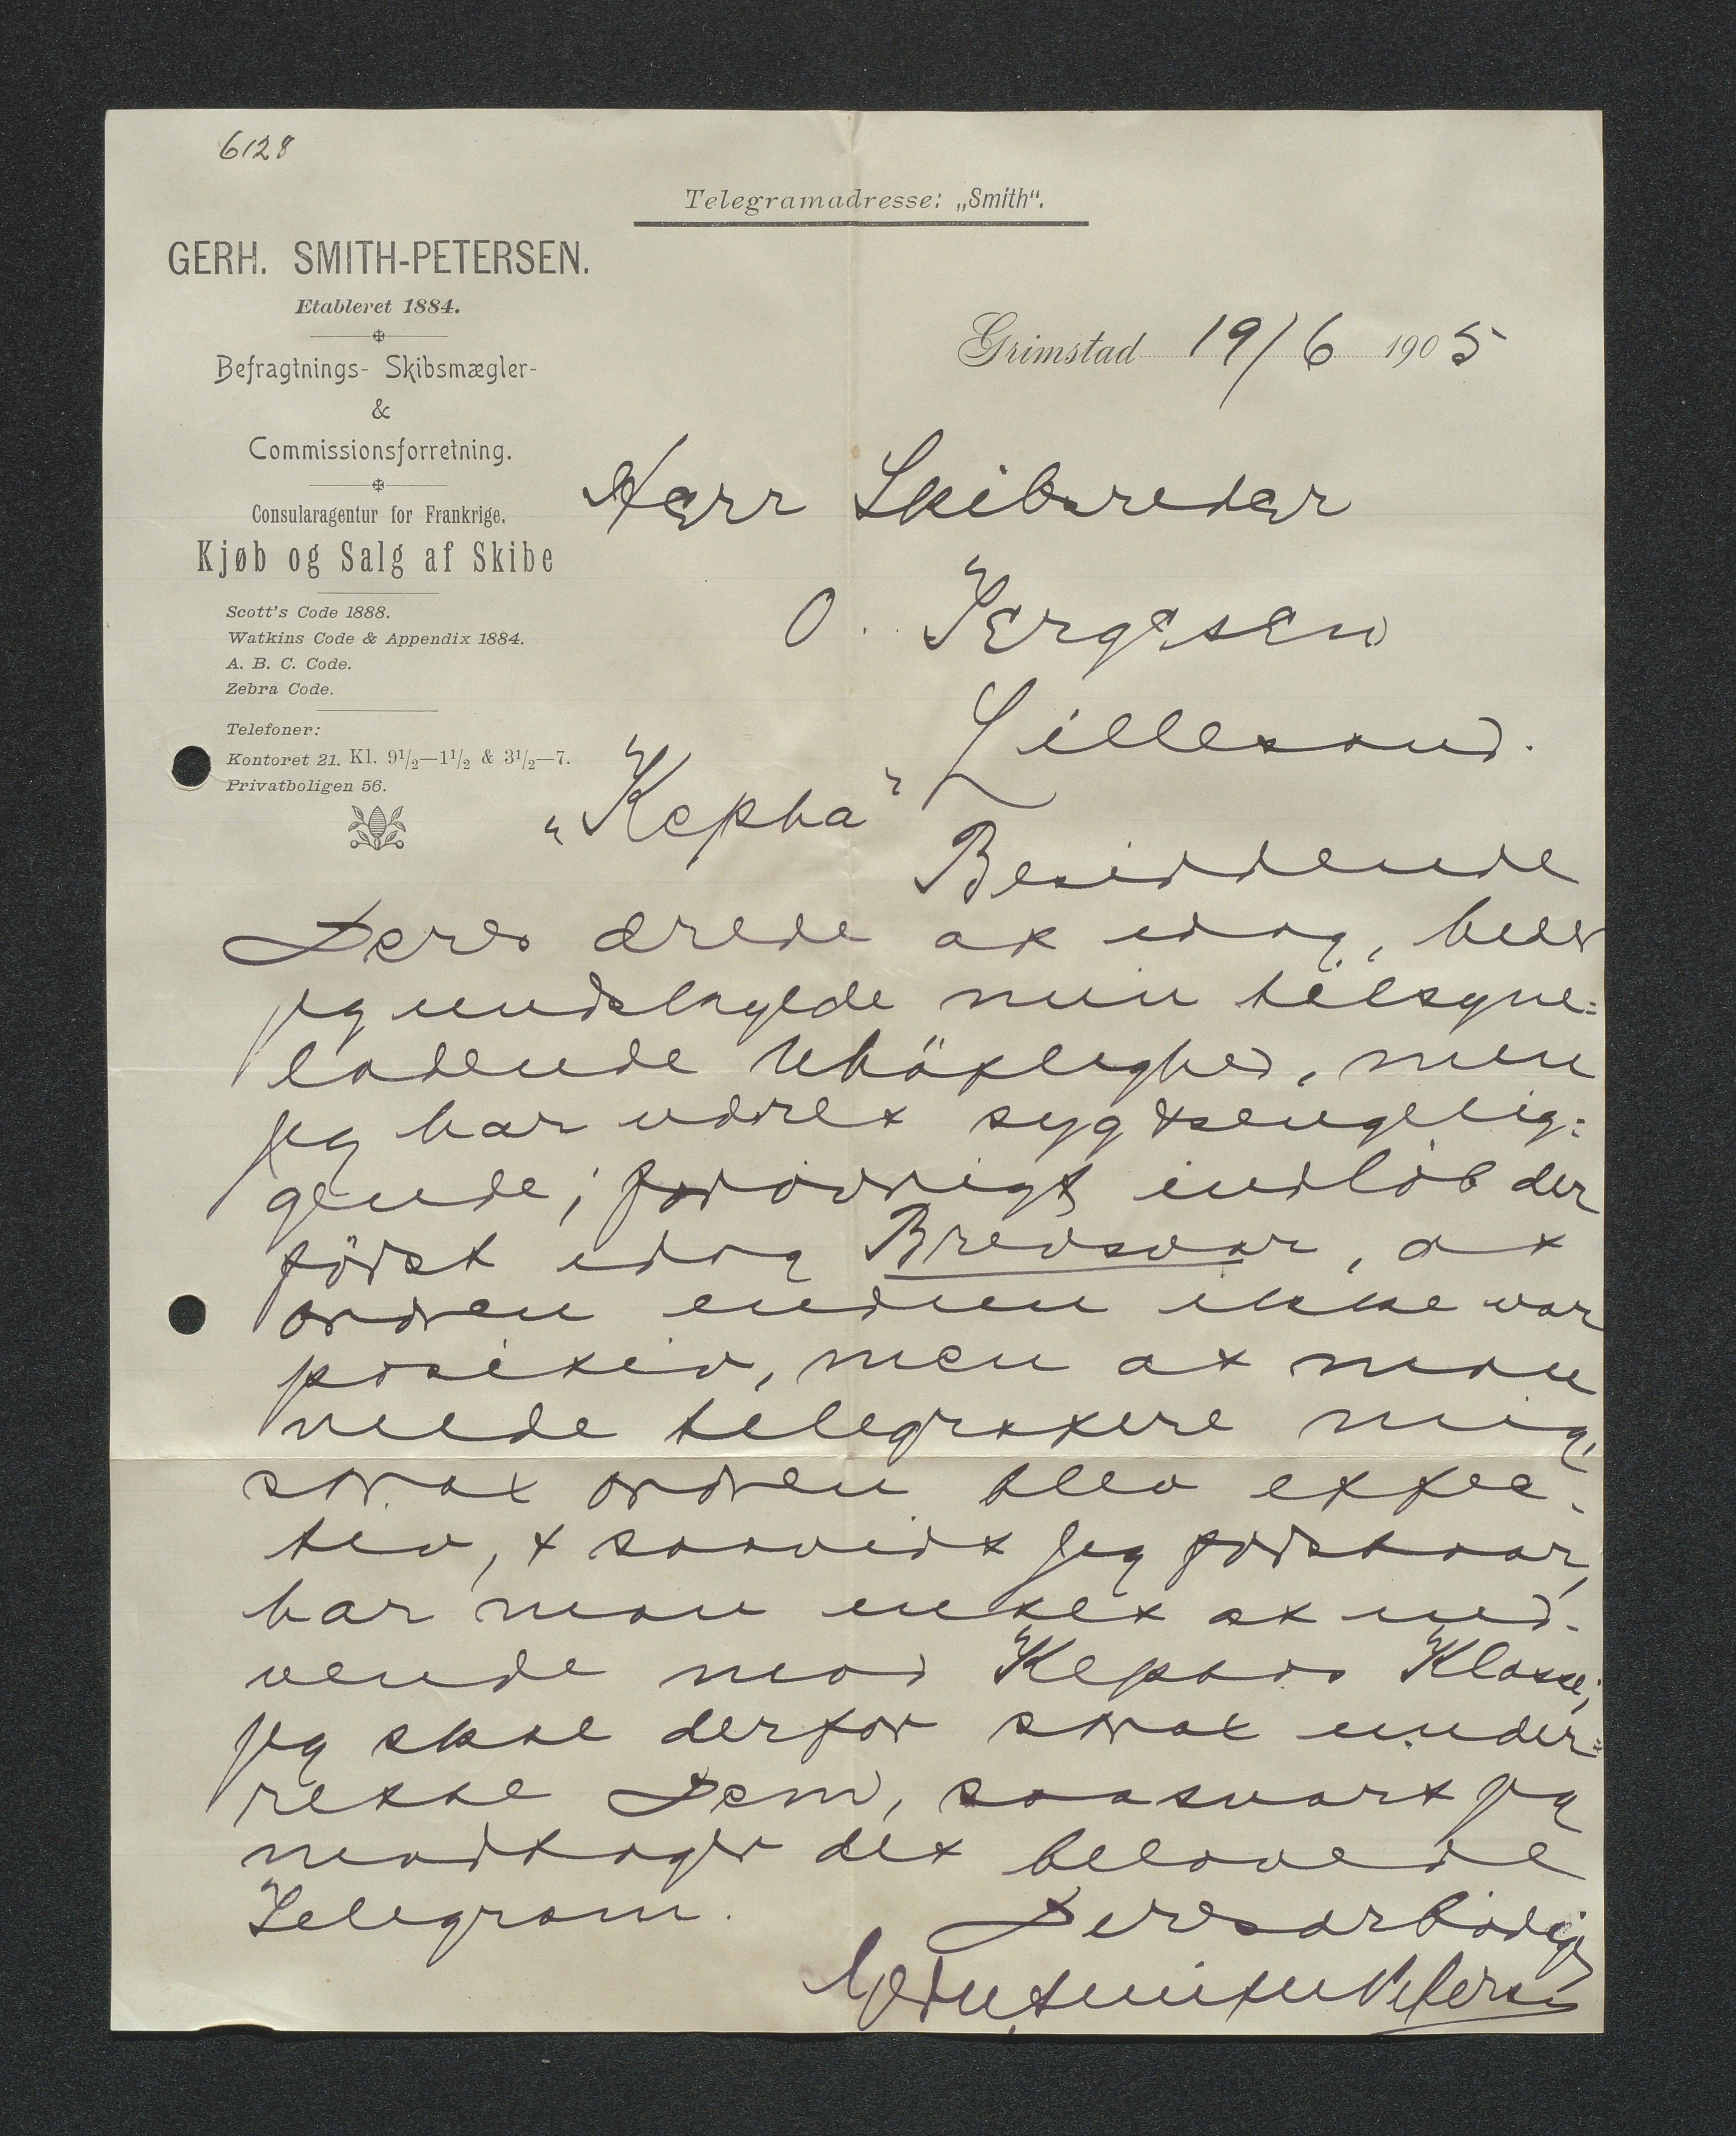 6128
Telegramadresse: „Smith“.
GERH. SMITH-PETERSEN.
Etableret 1884.
Befragtnings- Skibsmægler-
&
Commissionsforretning.
Consularagentur for Frankrige.
Kjøb og Salg af Skibe
Scott's Code 1888.
Watkins Code & Appendix 1884.
A. B. C. Code.
Zebra Code.
Telefoner:
Kontoret 21. Kl. 9½—1½ & 3½—7.
Privatboligen 56.
Grimstad 19/6 1905
Herr Skibsreder
O. Tergesen
Lillesand.
„Kepha“
Besiddende
Deres ærede af idag, beder
jeg undskylde min tilsyne=
ladende Uhöflighed, men
jeg har været syg & sengelig=
gende; forövrigt indlöb der
först idag Brevsvar, at
ordren endnu ikke var
positiv, men at man
vilde telegrafere mig,
strax ordren blev effec-
tiv, & saavidt jeg forstaar,
har man intet at ind-
vende mod Kephas Klasse;
jeg skal derfor strax under=
rette Dem, saasnart jeg
modtager det belovede
Telegram.
Deres ærbödig
Gerh Smith Petersen